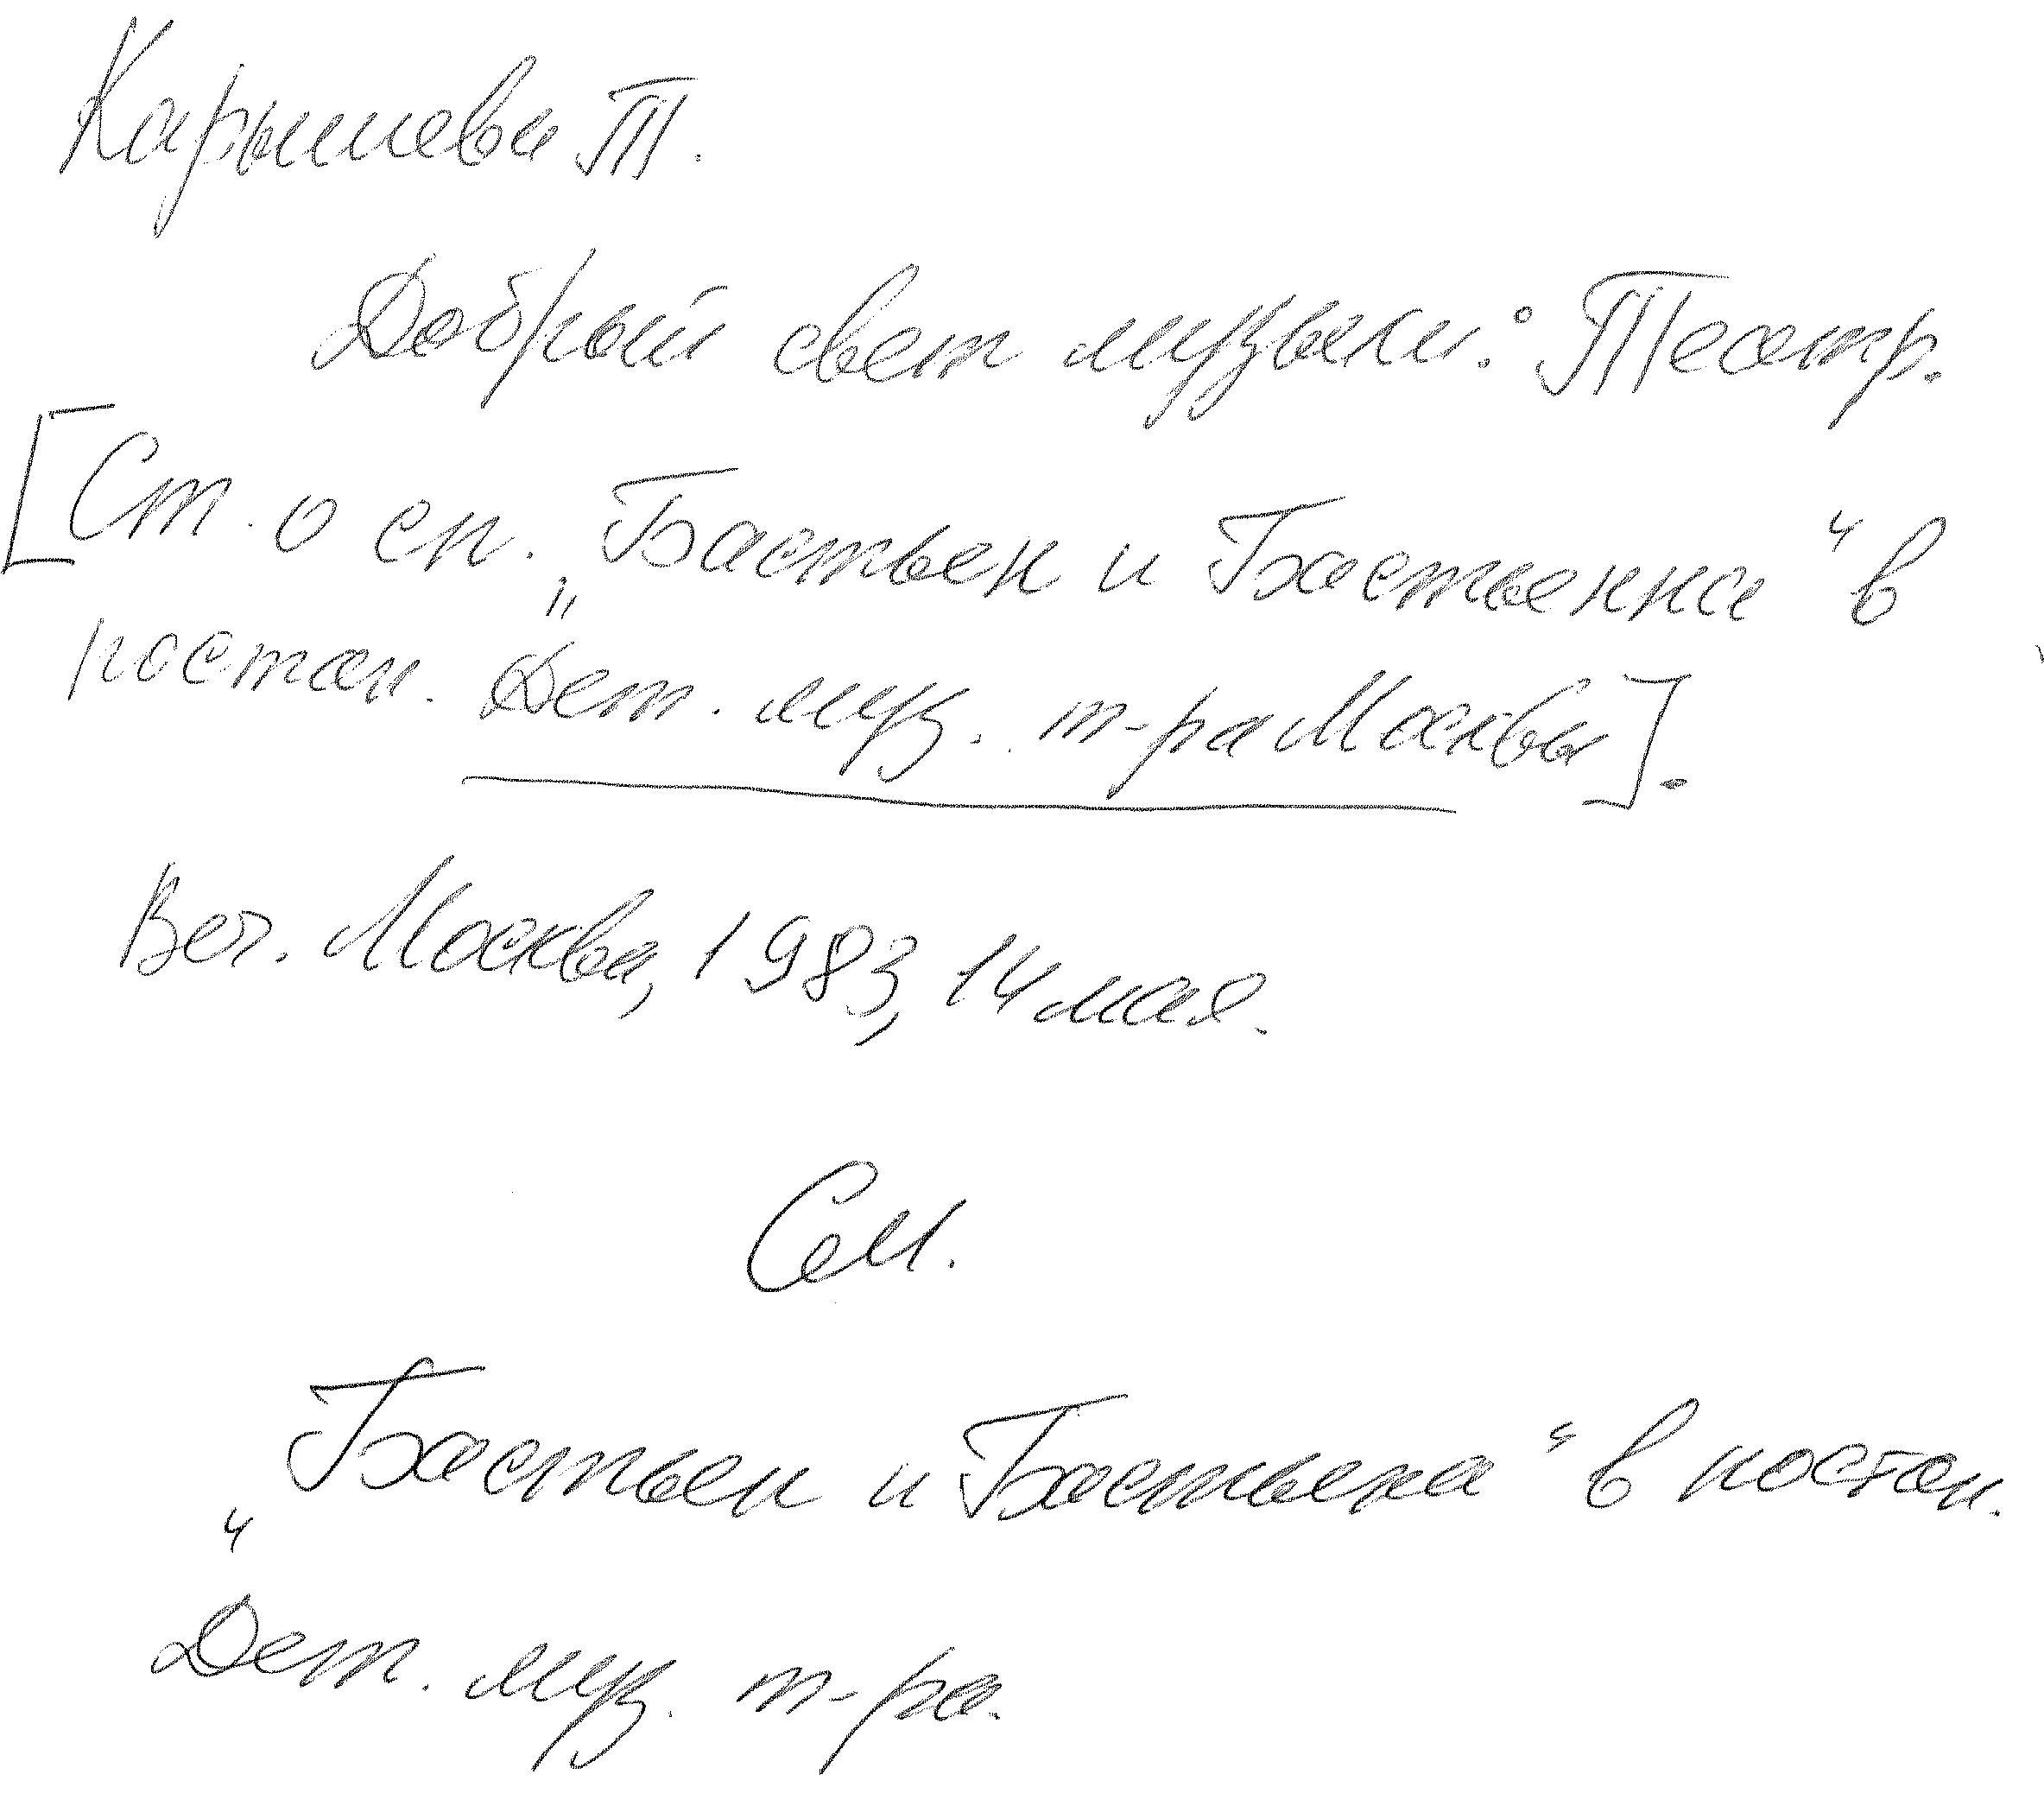 Карышева Т.
Добрый свет музыки: Театр.
[Ст. о сп. „Бастьен и Бастьенна“ в
постан. Дет. муз. т-ра Москвы].
Веч. Москва, 1983, 14 мая.
См.
„Бастьен и Бастьена“ в постан.
Дет. муз. т-ра.